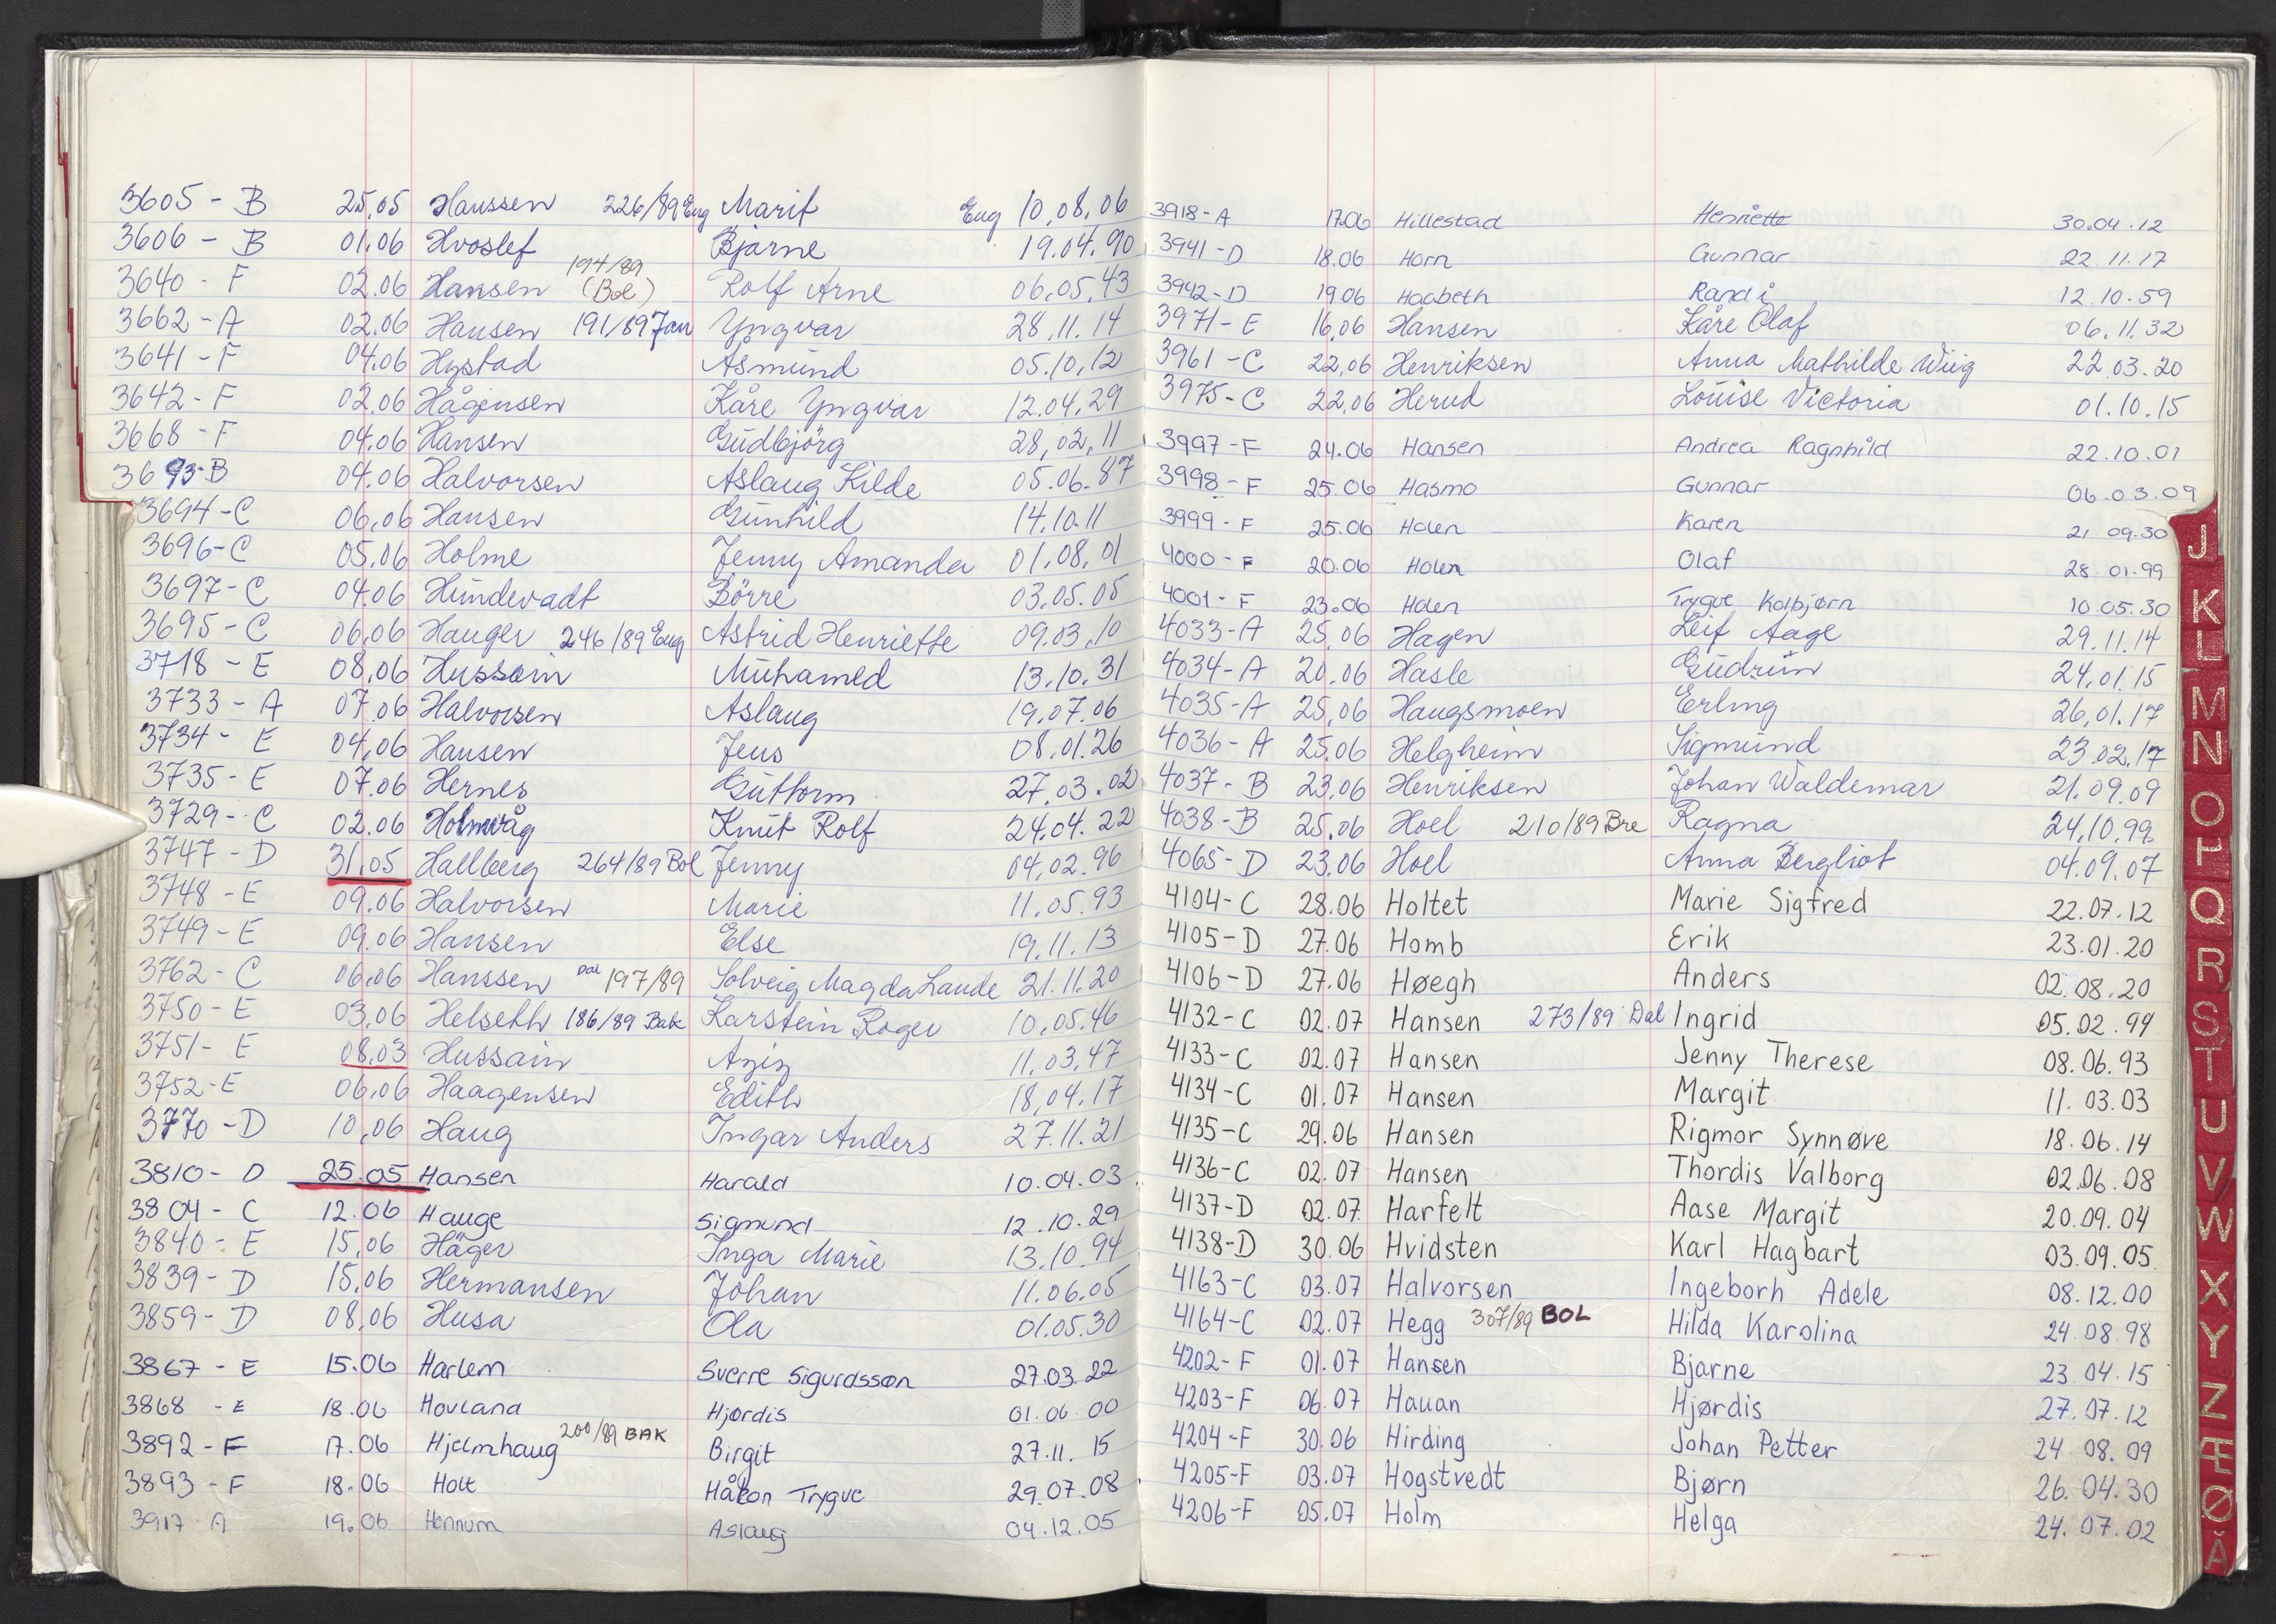 3605 - B 25.05 Hanssen 226/89 Eng Marit Eug 10.08.06
3606 - B 01.06 Hvoslef Bjarne 19.04.90
3640 - F 02.06 Hansen 194/89 (Bol) Rolf Arne 06.05.43
3662 - A 02.06 Hansen 191/89 Jan Yngvar 28.11.14
3641 - F 04.06 Hystad Asmund 05.10.12
3642 - F 02.06 Hågensen Kåre Yngvar 12.04.29
3668 - F 04.06 Hansen Gudbjörg 28.02.11
3693 - B 04.06 Halvorsen Aslaug Kilde 05.06.87
3694 - C 06.06 Hansen Gunhild 14.10.11
3696 - C 05.06 Holme Jenny Amanda 01.08.01
3697 - C 04.06 Hundevadt Börre 03.05.05
3695 - C 06.06 Hauger 246/89 Eug Astrid Henriette 09.03.10
3718 - E 08.06 Hussain Muhamed 13.10.31
3733 - A 07.06 Halvorsen Aslaug 19.07.06
3734 - E 04.06 Hansen Jens 08.01.26
3735 - E 07.06 Hernes Guttorm 27.03.02
3729 - C 02.06 Holmvåg Knut Rolf 24.04.22
3747 - D 31.05 Hallberg 264/89 Bol Jenny 04.02.96
3748 - E 09.06 Halvorsen Marie 11.05.93
3749 - E 09.06 Hansen Else 19.11.13
3762 - C 06.06 Hanssen Dal 197/89 Solveig Magda Lande 21.11.20
3750 - E 03.06 Helseth 186/89 Bak Karstein Roger 10.05.46
3751 - E 08.03 Hussain Aziz 11.03.47
3752 - E 06.06 Haagensen Edith 18.04.17
3770 - D 10.06 Haug Ingar Anders 27.11.21
3810 - D 25.05 Hansen Harald 10.04.03
3804 - C 12.06 Hauge Sigmund 12.10.29
3840 - E 15.06 Häger Inga Marie 13.10.94
3839 - D 15.06 Hermansen Johan 11.06.05
3859 - D 08.06 Husa Ola 01.05.30
3867 - E 15.06 Harlem Sverre Sigurdsson 27.03.22
3868 - E 18.06 Hovland Hjørdis 01.06.00
3892 - F 17.06 Hjelmhaug 200/89 BAK Birgit 27.11.15
3893 - F 18.06 Holt Håkon Trygve 29.07.08
3917 A 19.06 Hennum Aslaug 04.12.05
3918 - A 17.06 Hillestad Henriette 30.04.12
3941 - D 18.06 Horn Gunnar 22.11.17
3942 - D 19.06 Haabeth Randi 12.10.59
3971 - E 16.06 Hansen Kåre Olaf 06.11.32
3961 - C 22.06 Henriksen Anna Mathilde Wiig 22.03.20
3975 - C 22.06 Herud Louise Victoria 01.10.15
3997 - F 24.06 Hansen Andrea Ragnhild 22.10.01
3998 - F 25.06 Hasmo Gunnar 06.03.09
3999 - F 25.06 Holen Karen 21.09.30
4000 - F 20.06 Holen Olaf 28.01.99
4001 - F 23.06 Holen Trygve Kolbjørn 10.05.30
4033 - A 25.06 Hagen Leif Aage 29.11.14
4034 - A 20.06 Hasle Gudrun 24.01.15
4035 - A 25.06 Haugsmoen Erling 26.01.17
4036 - A 25.06 Helgheim Sigmund 23.02.17
4037 - B 23.06 Henriksen Johan Waldemar 21.09.09
4038 - B 25.06 Hoel 210/89 Bre Ragna 24.10.99
4065 - D 23.06 Hoel Anna Bergliot 04.09.07
4104 - C 28.06 Holtet Marie Sigfred 22.07.12
4105 - D 27.06 Homb Erik 23.01.20
4106 - D 27.06 Høegh Anders 02.08.20
4132 - C 02.07 Hansen 273/89 Dal Ingrid 05.02.94
4133 - C 02.07 Hansen Jenny Therese 08.06.93
4134 - C 01.07 Hansen Margit 11.03.03
4135 - C 29.06 Hansen Rigmor Synnøve 18.06.14
4136 - C 02.07 Hansen Thordis Valborg 02.06.08
4137 - D 02.07 Harfelt Aase Margit 20.09.04
4138 - D 30.06 Hvidsten Karl Hagbart 03.09.05
4163 - C 03.07 Halvorsen Ingeborh Adele 08.12.00
4164 - C 02.07 Hegg 307/89 BOL Hilda Karolina 24.08.98
4202 - F 01.07 Hansen Bjarne 23.04.15
4203 - F 06.07 Hauan Hjørdis 27.07.12
4204 - F 30.06 Hirding Johan Petter 24.08.09
4205 - F 03.07 Hogstvedt Bjørn 26.04.30
4206 - F 05.07 Holm Helga 24.07.02
J
K
L
M
N
O
P
Q
R
S
T
U
V
W
X
Y
Z
Æ
Ø
Å